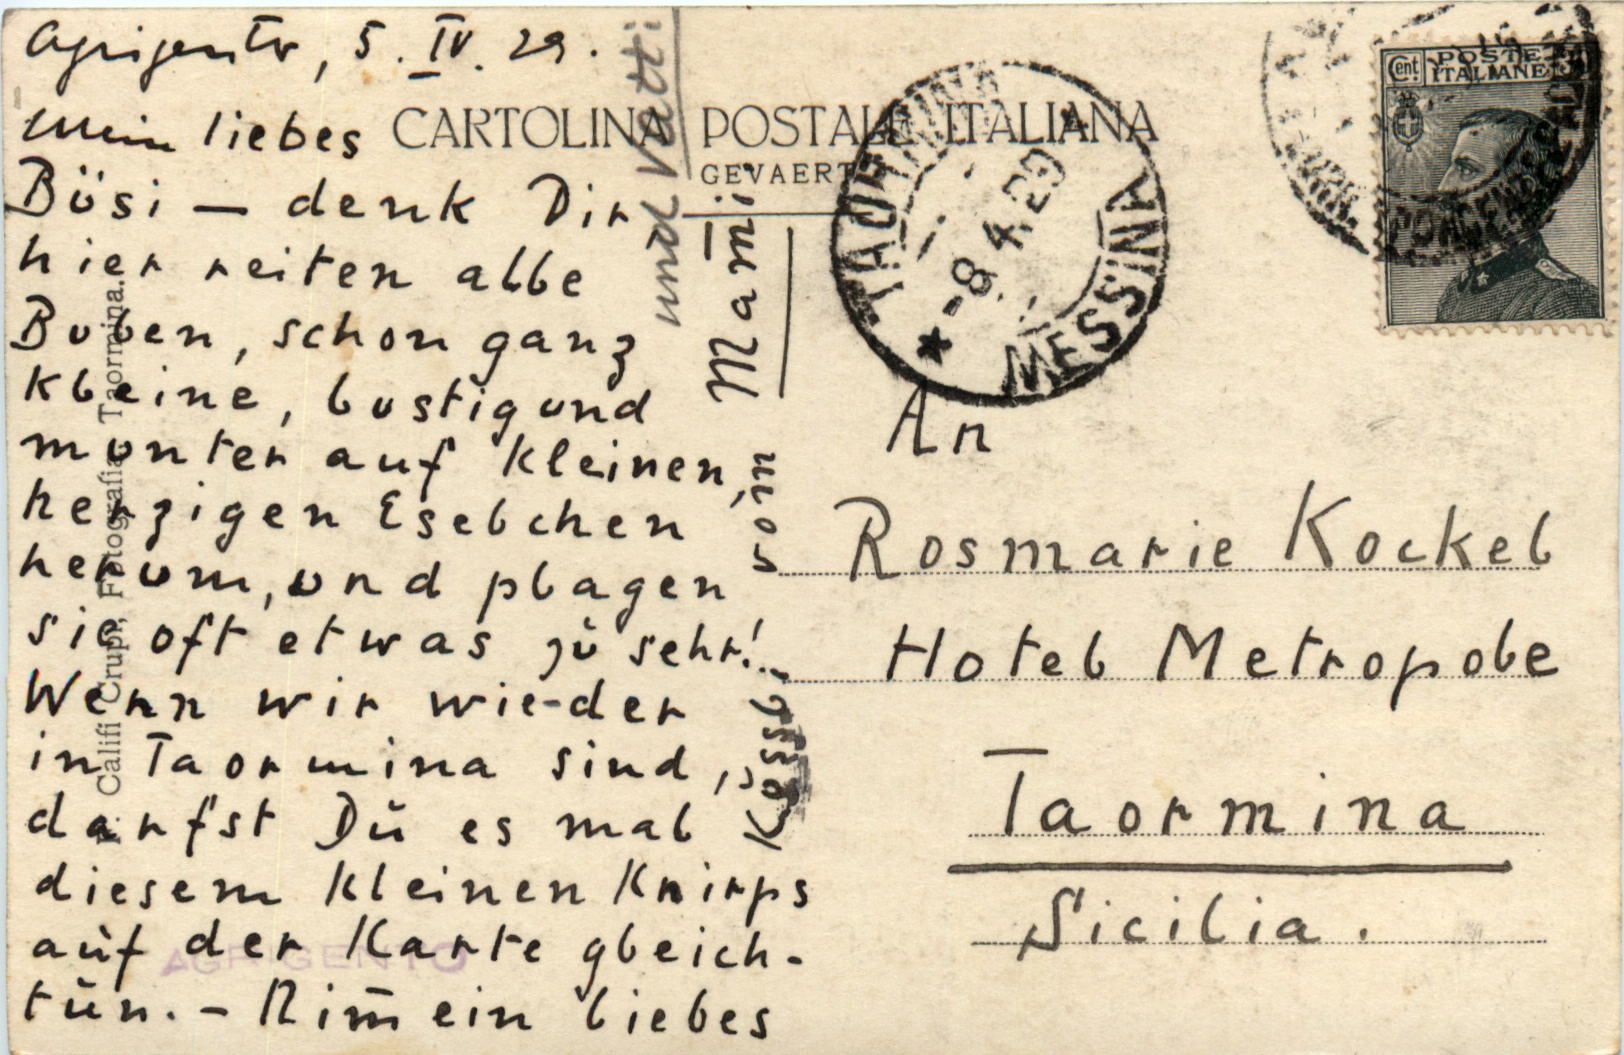 Agrigento, 5. IV. 29.
Mein liebes
Bösi — denk Dir
hier reiten alle
Buben, schon ganz
kleine, lustig und
munter auf kleinen,
herzigen Eselchen
herum, und plagen
sie oft etwas zŭ sehr!
Wenn wir wie-der
in Taormina sind,
darfst Dŭ es mal
diesem kleinen Knirps
aŭf der Karte gleich-
tŭn. – Nim̅ ein liebes
Küssli vom Mam̅i
und Vatti
CARTOLINA POSTALE ITALIANA
GEVAERT
Califi Crupi, Fotografia Taormina.
AGRIGENTO
TAORMINA
-8.4.29
MESSINA
Cent. POSTE ITALIANE
An
Rosmarie Kockel
Hotel Metropole
Taormina
Sicilia.